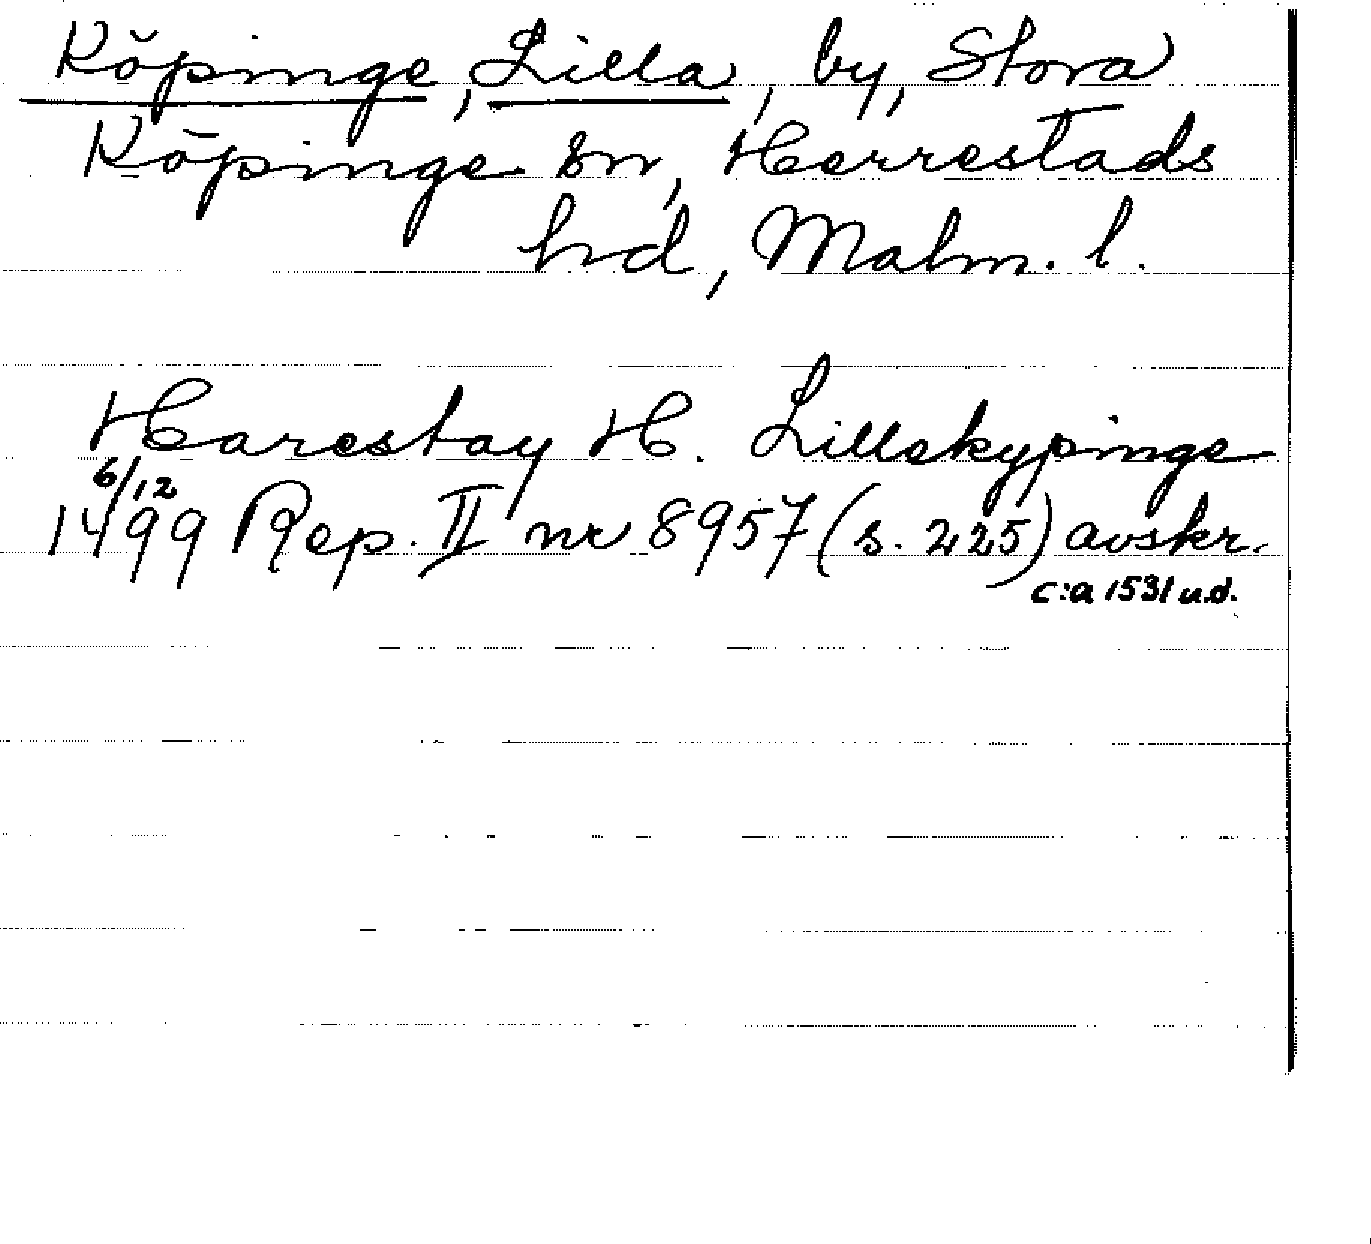 Köpinge, Lilla, by, Stora
Köpinge sn, Herrestads
hd, Malm. l.
Harestay H. Lillekypinge
6/12
1499 Rep. II nr 8957 (s. 225) avskr.
c:a 1531 u.d.